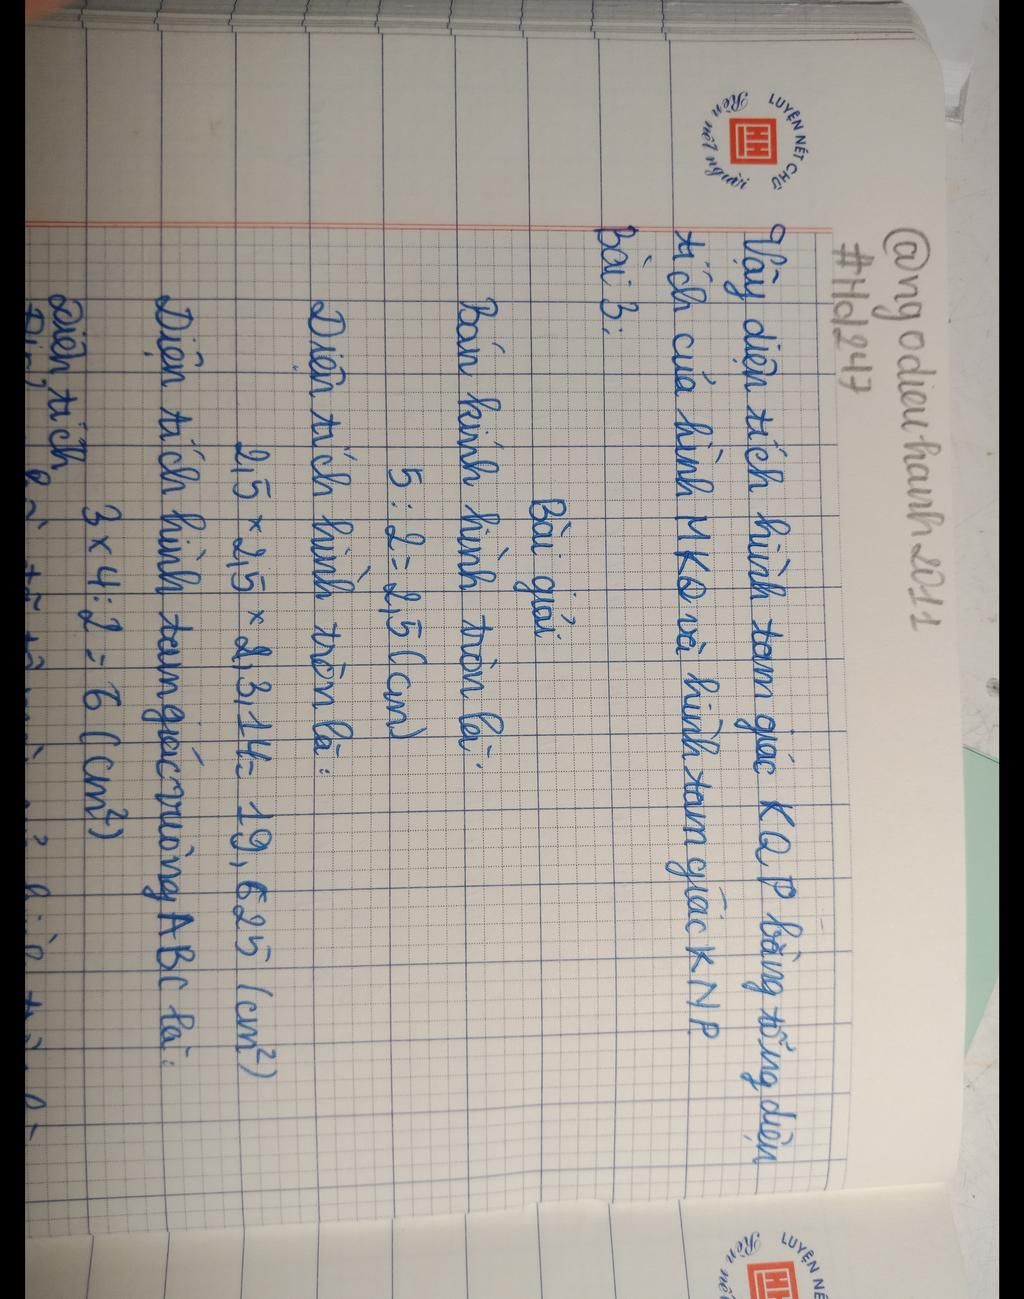 @ngodieuhanh2011
#Hd247
LUYỆN NÉT CHỮ
HH
Rèn nết người
Vậy diện tích hình tam giác KQP bằng tổng diện
tích của hình MKQ và hình tam giác KNP
Bài 3:
Bài giải
Bán kính hình tròn là:
5 : 2 = 2,5 (cm)
Diện tích hình tròn là:
2,5 × 2,5 × 2,3,14 = 19,625 (cm²)
Diện tích hình tam giác vuông ABC là:
3 × 4 : 2 = 6 (cm²)
Diện tích
LUYỆN NÉ
HH
Rèn nết